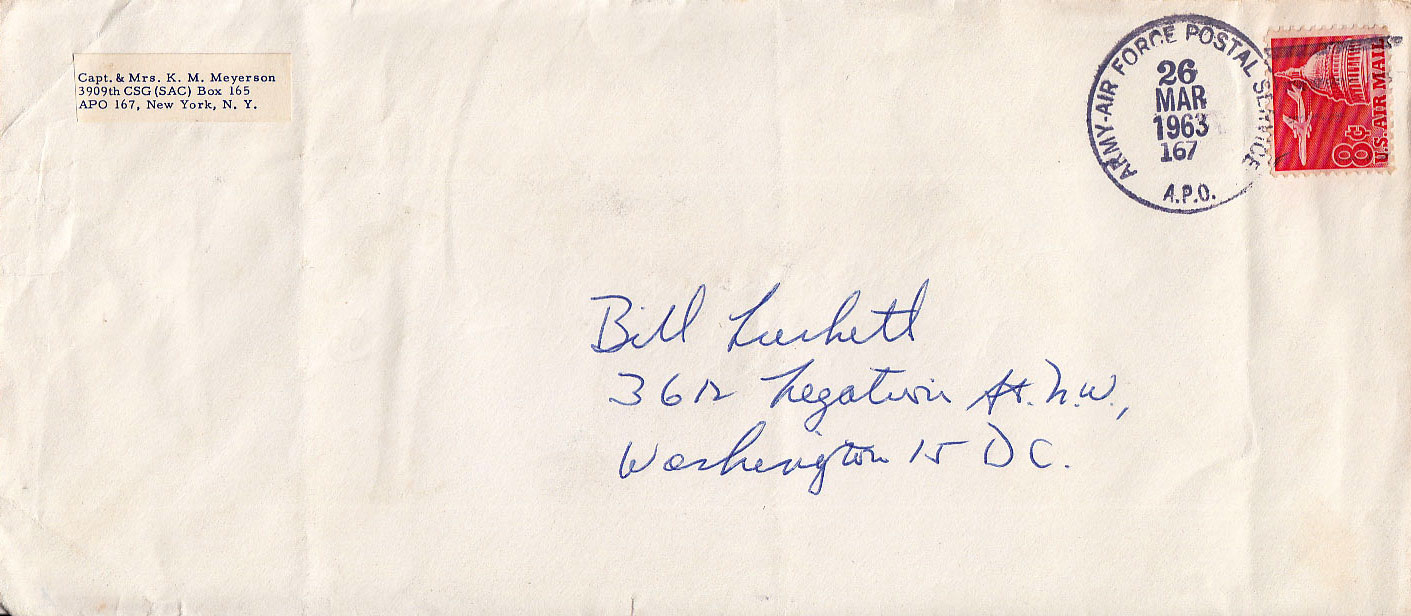 Capt. & Mrs. K. M. Meyerson
3909th CSG (SAC) Box 165
APO 167, New York, N. Y.
ARMY-AIR FORCE POSTAL SERVICE
26
MAR
1963
167
A.P.O.
8¢
U.S. AIR MAIL
Bill Luckett
3612 Legation St. N.W.,
Washington 15 D C.